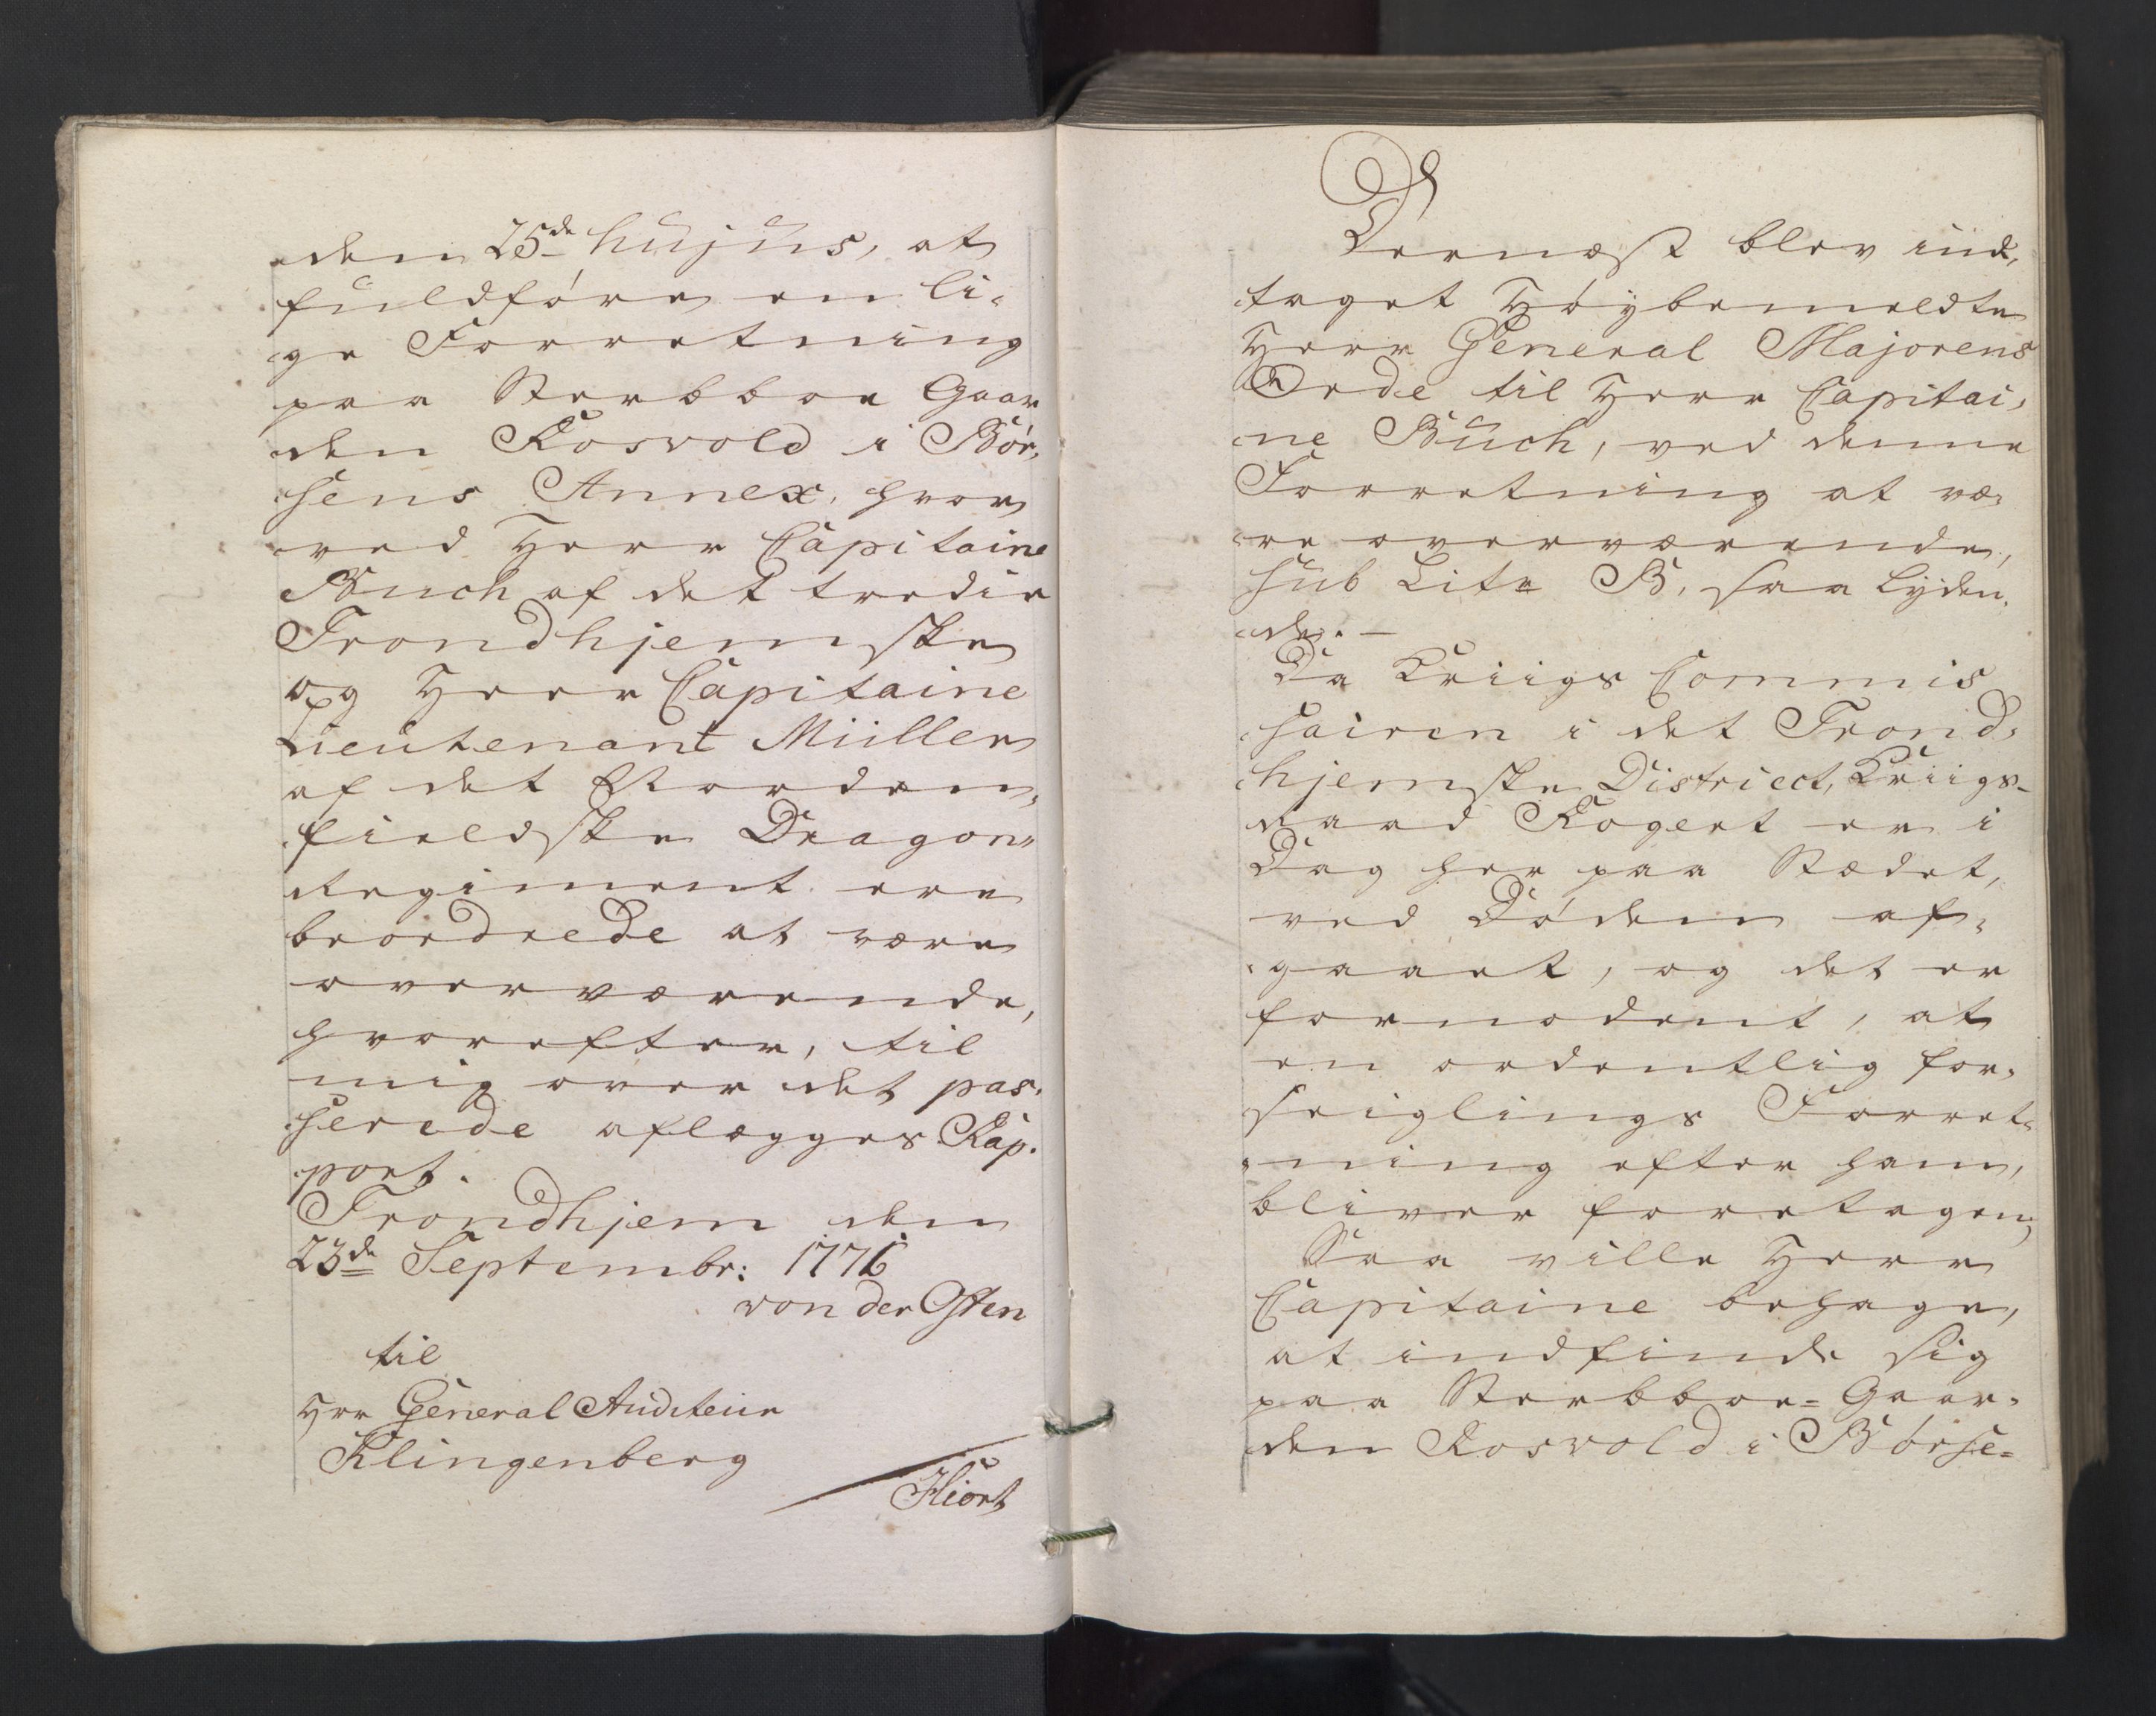 den 25de hujus, at
fuldføre en li-
ge Forretning
paa Sterbboe Gaar
den Rosvold i Bør-
sens Annex, hvor
ved Herr Capitaine
Buch af det tredie
Trondhjemske
og Herr Capitaine
Lieutenant Müller
af det Norden-
fieldske Dragon-
Regiment ere
beordrede at være
overværende,
hvorefter, til
mig over det pas-
serede aflægges Rap-
port.
Trondhjem den
23de Septembr: 1776
von der Osten
til
Hrr General Auditeur
Klingenberg
Hiort
Dernæst blev ind-
taget Høybemeldte
Herr General Majorens
Orde til Herr Capitai-
ne Buch, ved denne
Forretning at væ-
re overværende,
sub Litr B, saa lyden-
de. —
Da Kriigs Commis
sairen i det Trond-
hjemske District, Kriigs-
raad Rogert er i
Dag her paa Stædet,
ved Døden af-
gaaet, og det er
formodent, at
en ordentlig for-
seiglings Forret-
ning efter ham,
bliver foretagen,
Saa ville Herr
Capitaine behage,
at indfinde sig
paa Sterbboe-Gaar-
den Rosvold i Børse-